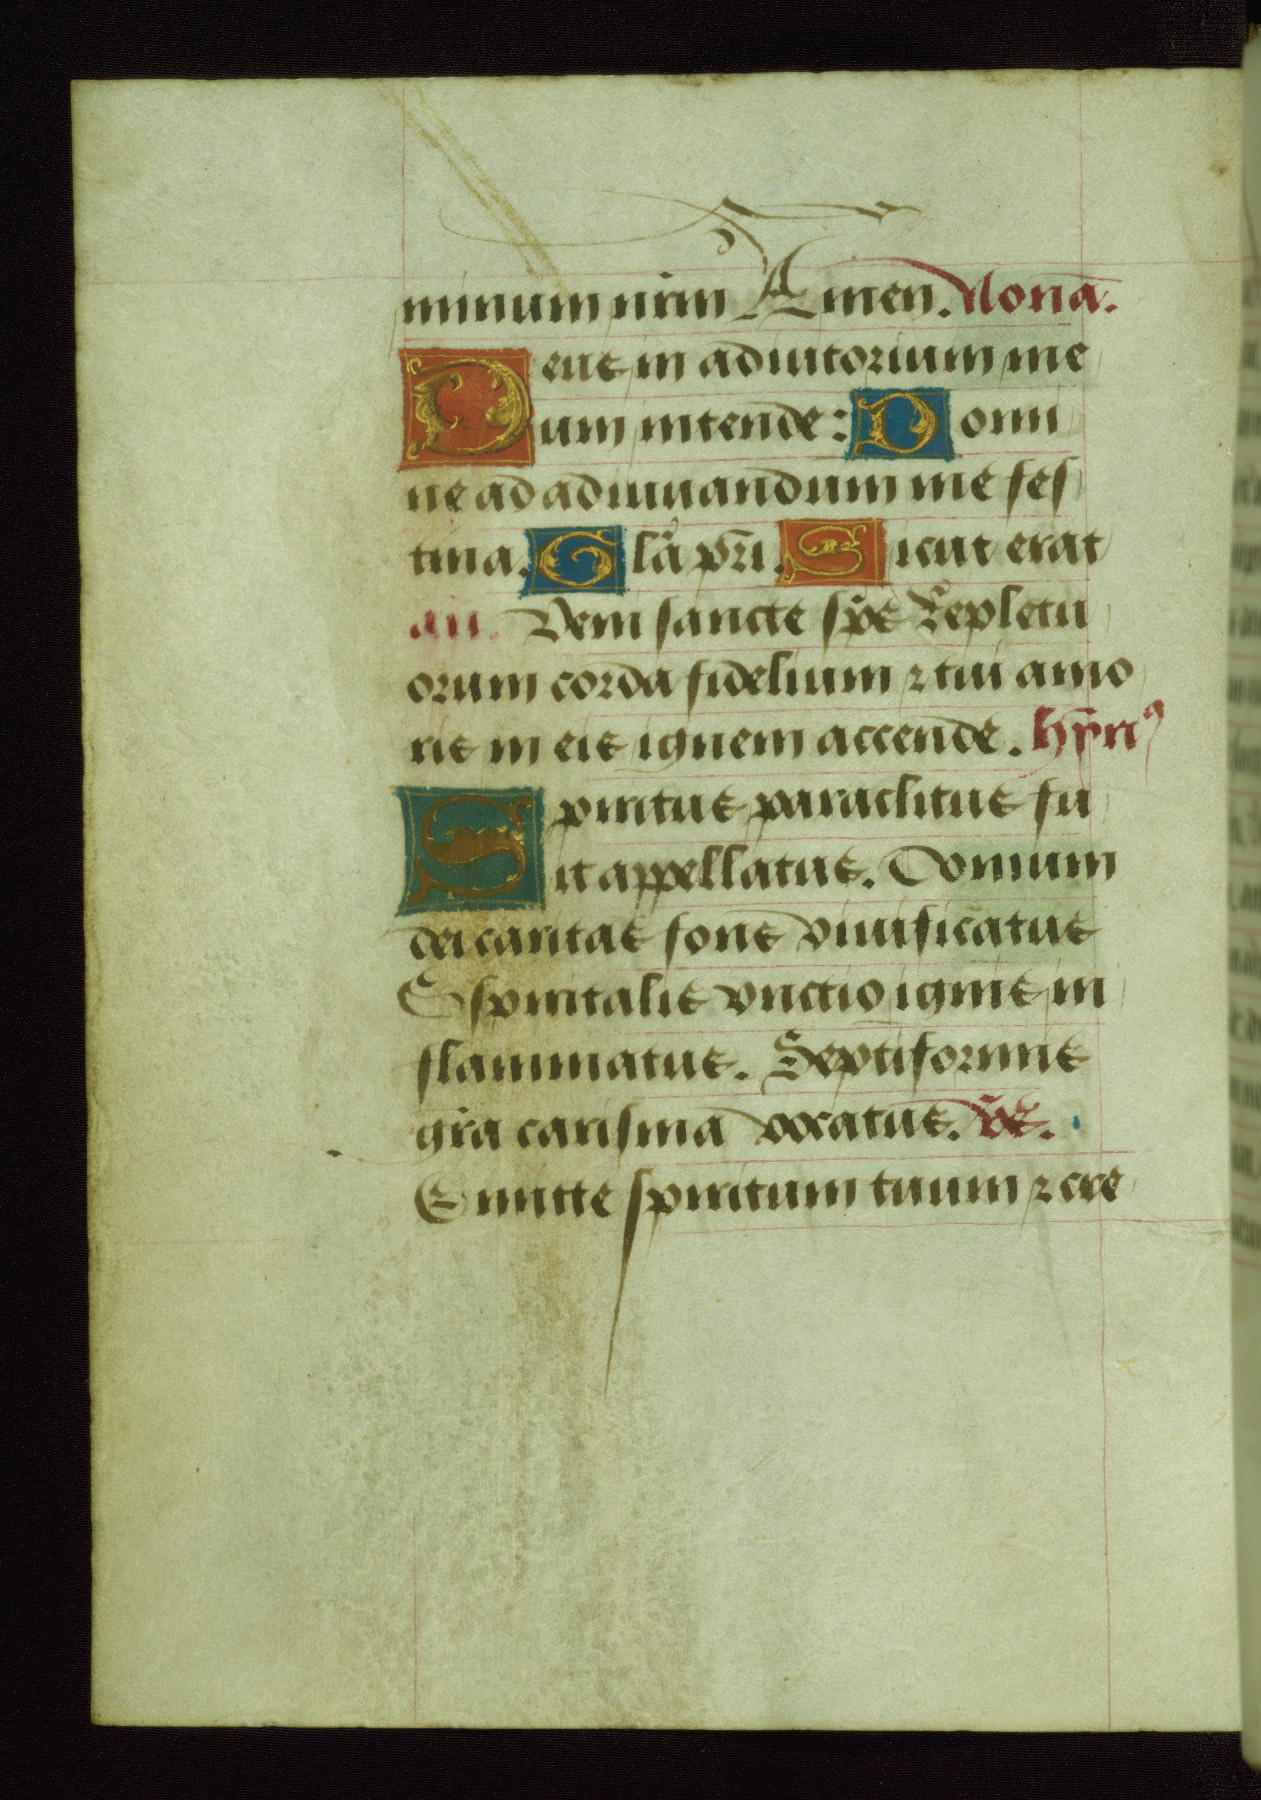 minum nr̄m Amen. Nona.
Deus in adiutorium me
um intende: Domi
ne ad adiuuandum me fes
tina. Glā pr̄i. Sicut erat
añ. Veni sancte sp̄s Reple tu
orum corda fidelium ⁊ tui amo
ris in eis ignem accende. hym̄ꝰ
Spiritus paraclitus fu
it appellatus. Donum
dei caritas fons viuificatus
Spiritalis vnctio ignis in
flammatus. Septiformis
gr̄a carisma vocatus. v̄s.
Emitte spiritum tuum ⁊ cre